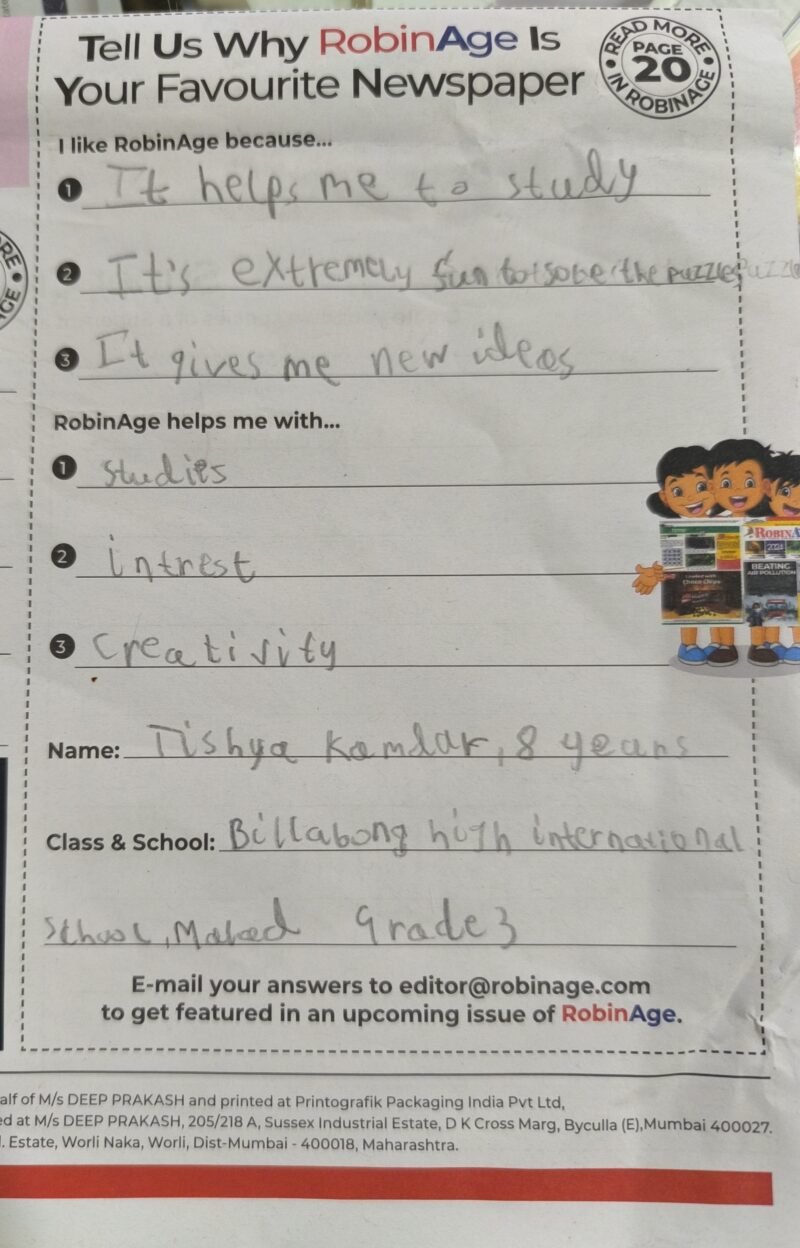 Tell Us Why RobinAge Is
Your Favourite Newspaper
READ MORE
PAGE
20
IN ROBINAGE
I like RobinAge because...
1 It helps me to study
2 It's extremely fun to solve the puzzles
3 It gives me new ideas
RobinAge helps me with...
1 studies
2 intrest
3 creativity
ROBINA
BEATING
AIR POLLUTION
Name: Tishya Kamdar, 8 years
Class & School: Billabong high international
School, Malad Grade 3
E-mail your answers to editor@robinage.com
to get featured in an upcoming issue of RobinAge.
alf of M/s DEEP PRAKASH and printed at Printografik Packaging India Pvt Ltd,
ed at M/s DEEP PRAKASH, 205/218 A, Sussex Industrial Estate, D K Cross Marg, Byculla (E),Mumbai 400027.
l. Estate, Worli Naka, Worli, Dist-Mumbai - 400018, Maharashtra.